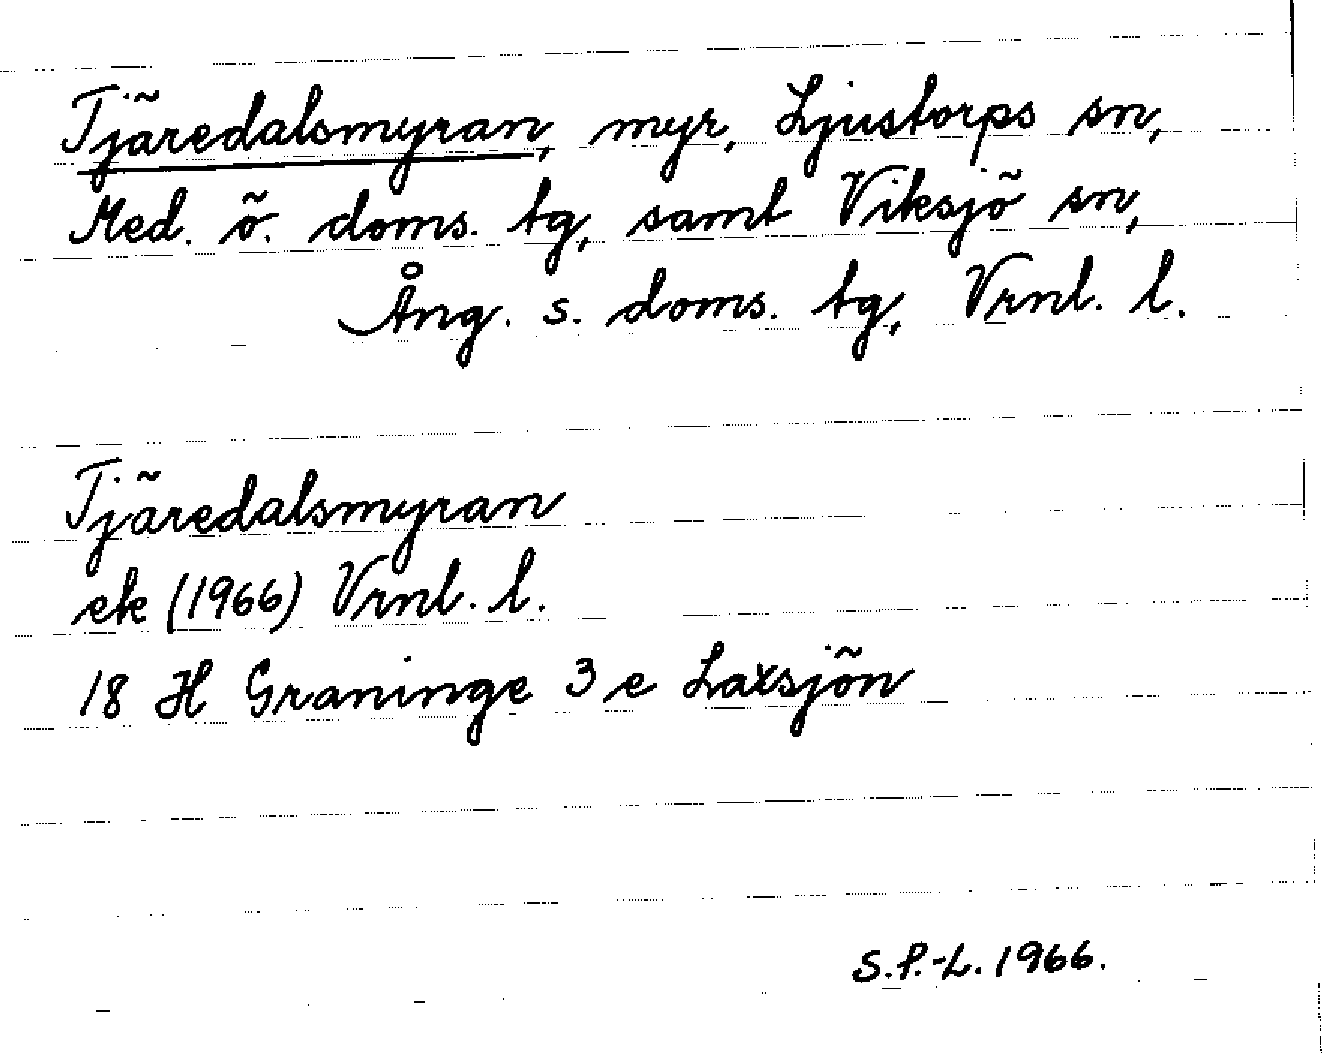 Tjäredalsmyran, myr, Ljustorps sn,
Med. ö. doms. tg, samt Viksjö sn,
Ång. s. doms. tg, Vrnl. l.
Tjäredalsmyran
ek (1966) Vrnl. l.
18 H Graninge 3 e Laxsjön
S.P.-L. 1966.